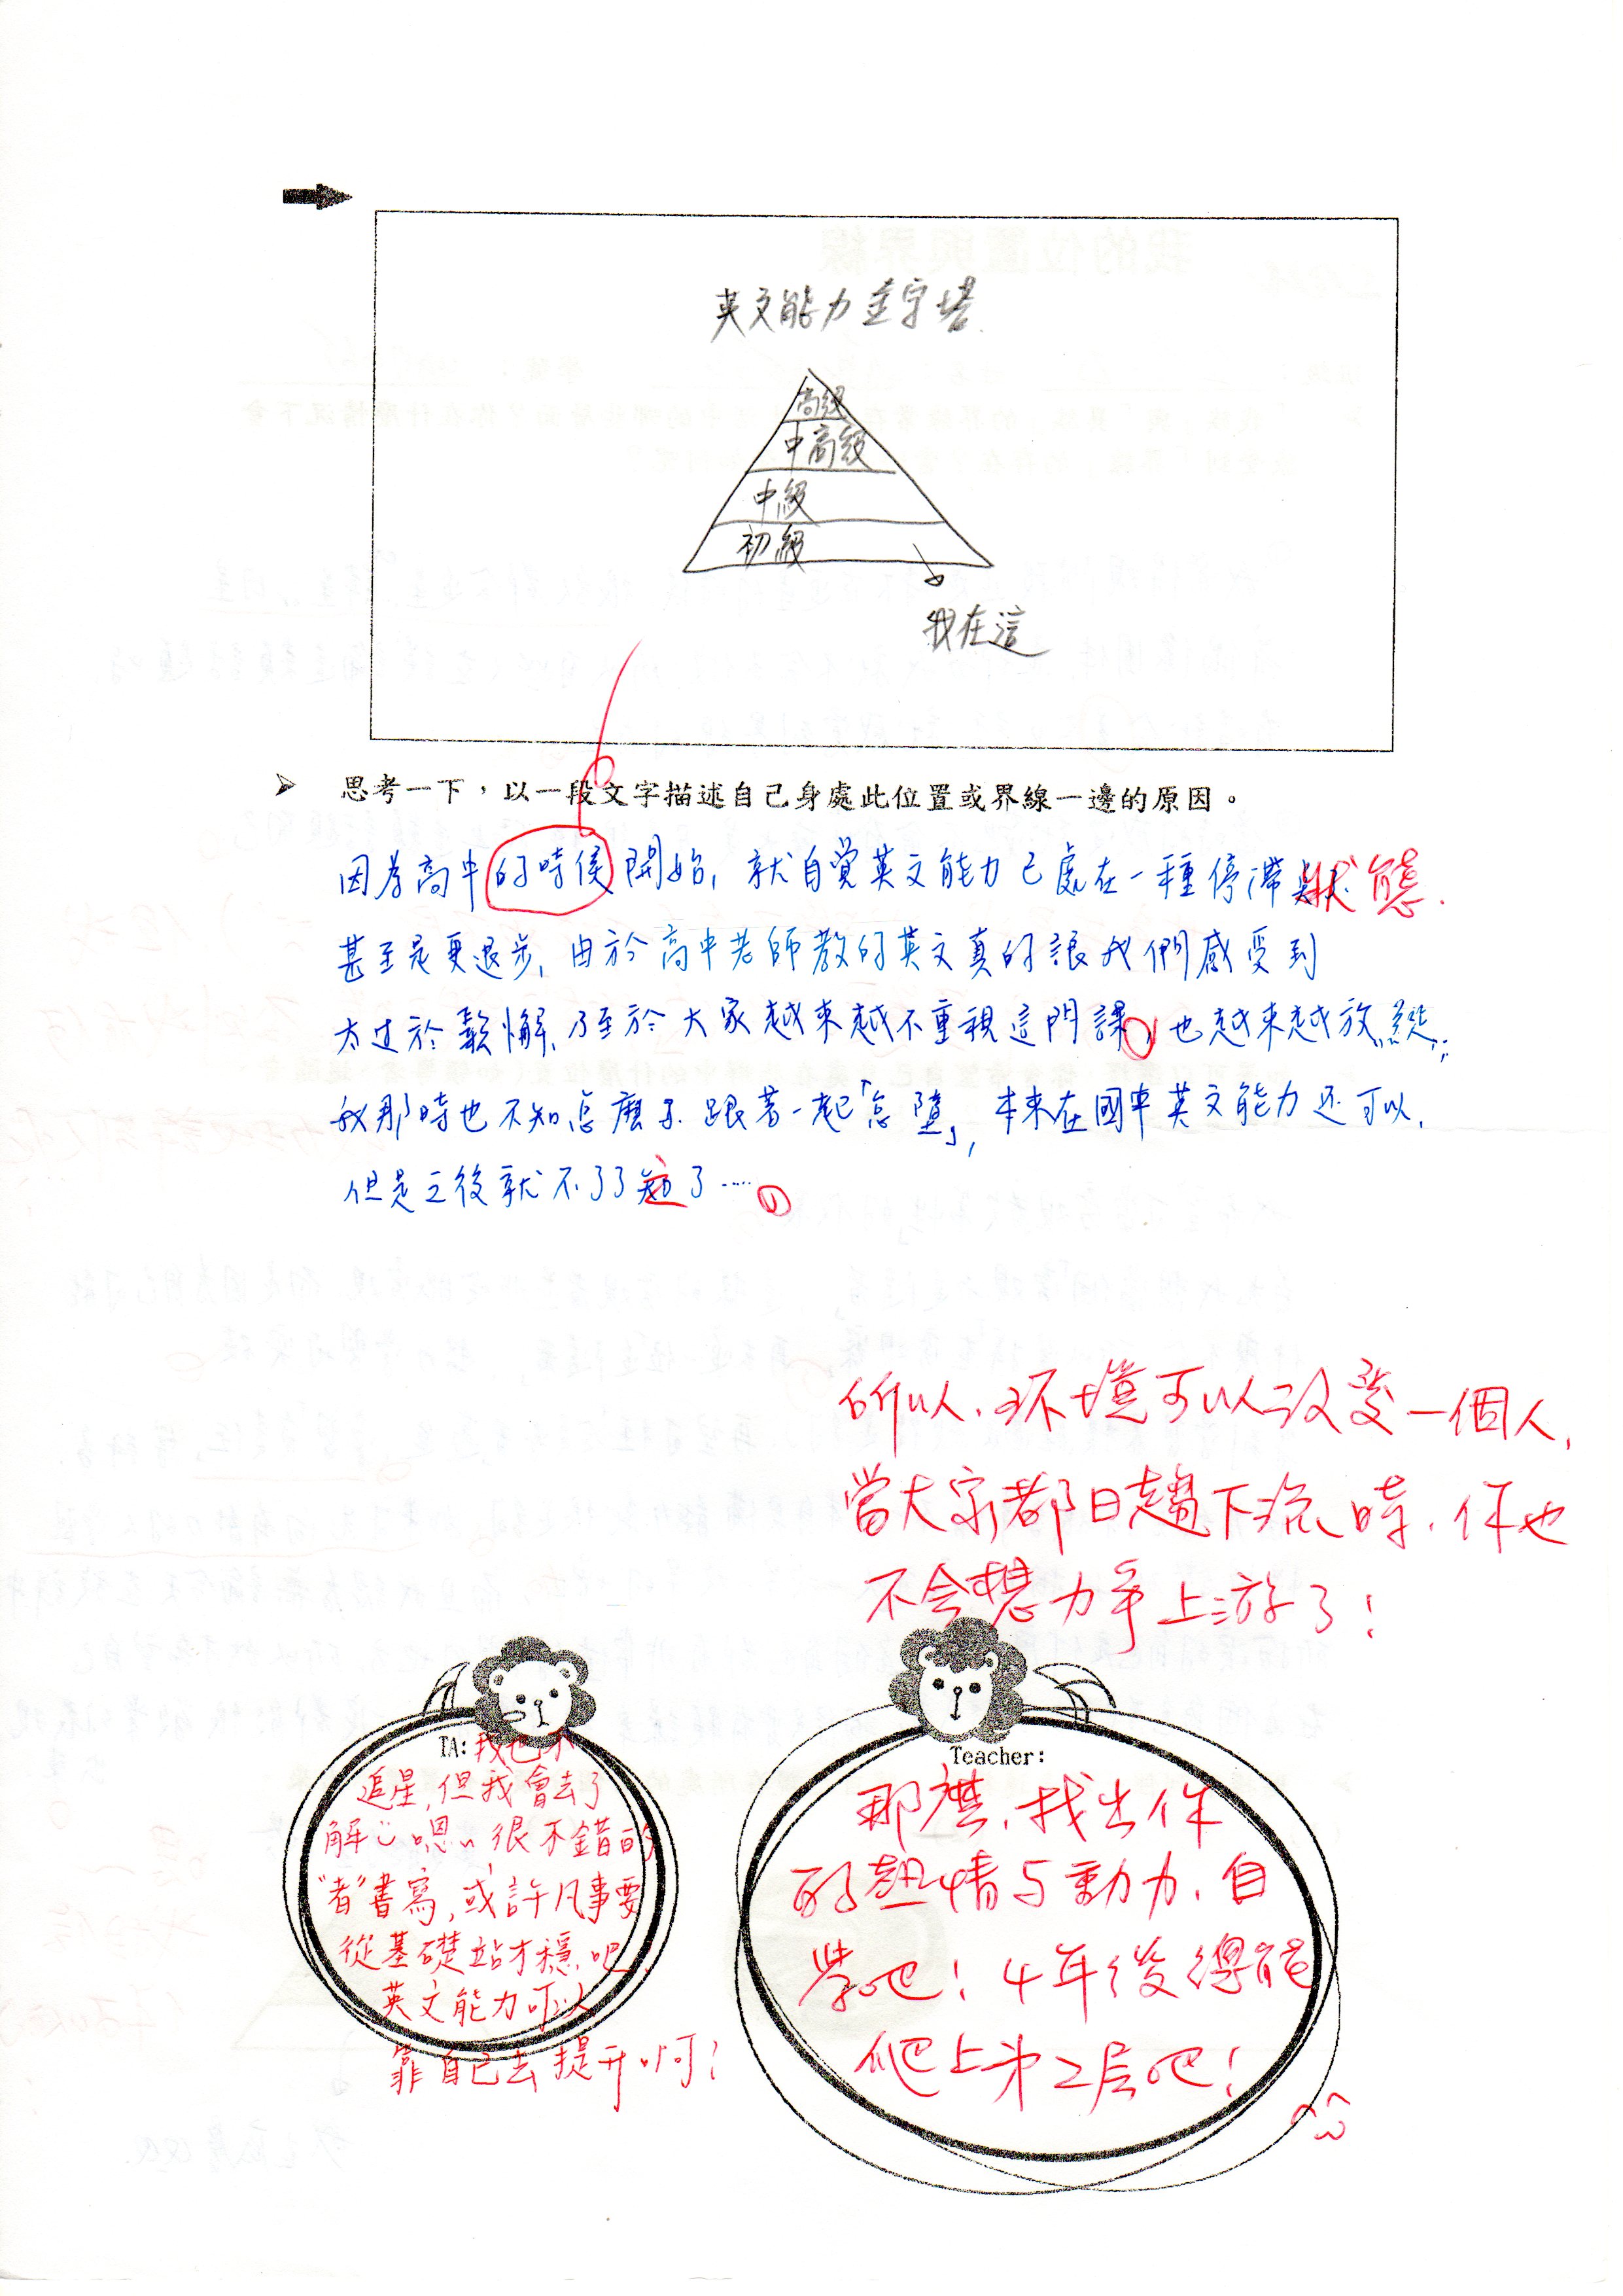 英文能力金字塔
高級
中高級
中級
初級
我在這
思考一下，以一段文字描述自己身處此位置或界線一邊的原因。
因為高中的時候開始，就自覺英文能力已處在一種停滯狀態.
甚至是更退步, 由於高中老師教的英文真的讓我們感受到
太过於鬆懈, 乃至於大家越來越不重視這門課, 也越來越放"縱",
我那時也不知怎麼了 跟著一起「怠墮」, 本來在國中英文能力还可以,
但是之後就不了了之了……
所以，环境可以改变一個人,
當大家都日趨下流時，你也
不会想力爭上游了！
TA: 我也不
追星, 但我會去了
解 嗯~ 很不錯的
"者"書寫, 或許凡事要
從基礎站才穩吧
英文能力可以
靠自己去提升啊!
Teacher:
那麼，找出你
的熱情与動力，自
學吧！4年後得能
爬上第2层吧！